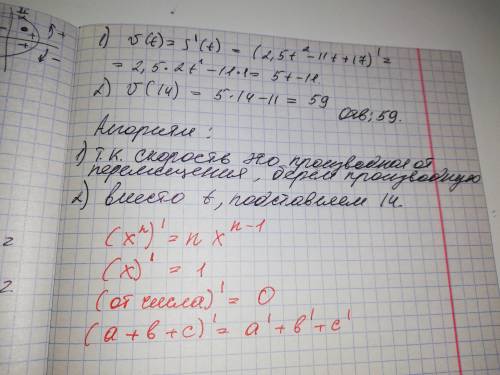 1) v(t) = S'(t) = (2,5t² - 11t + 17)' =
= 2,5·2t' - 11·1 = 5t - 11
2) v(14) = 5·14 - 11 = 59
Отв: 59.
Алгоритм:
1) Т.К. скорость это производная от
перемещения, берём производную
2) вместо t, подставляем 14.
(xⁿ)' = n xⁿ⁻¹
(x)' = 1
(от числа)' = 0
(a + b + c)' = a' + b' + c'